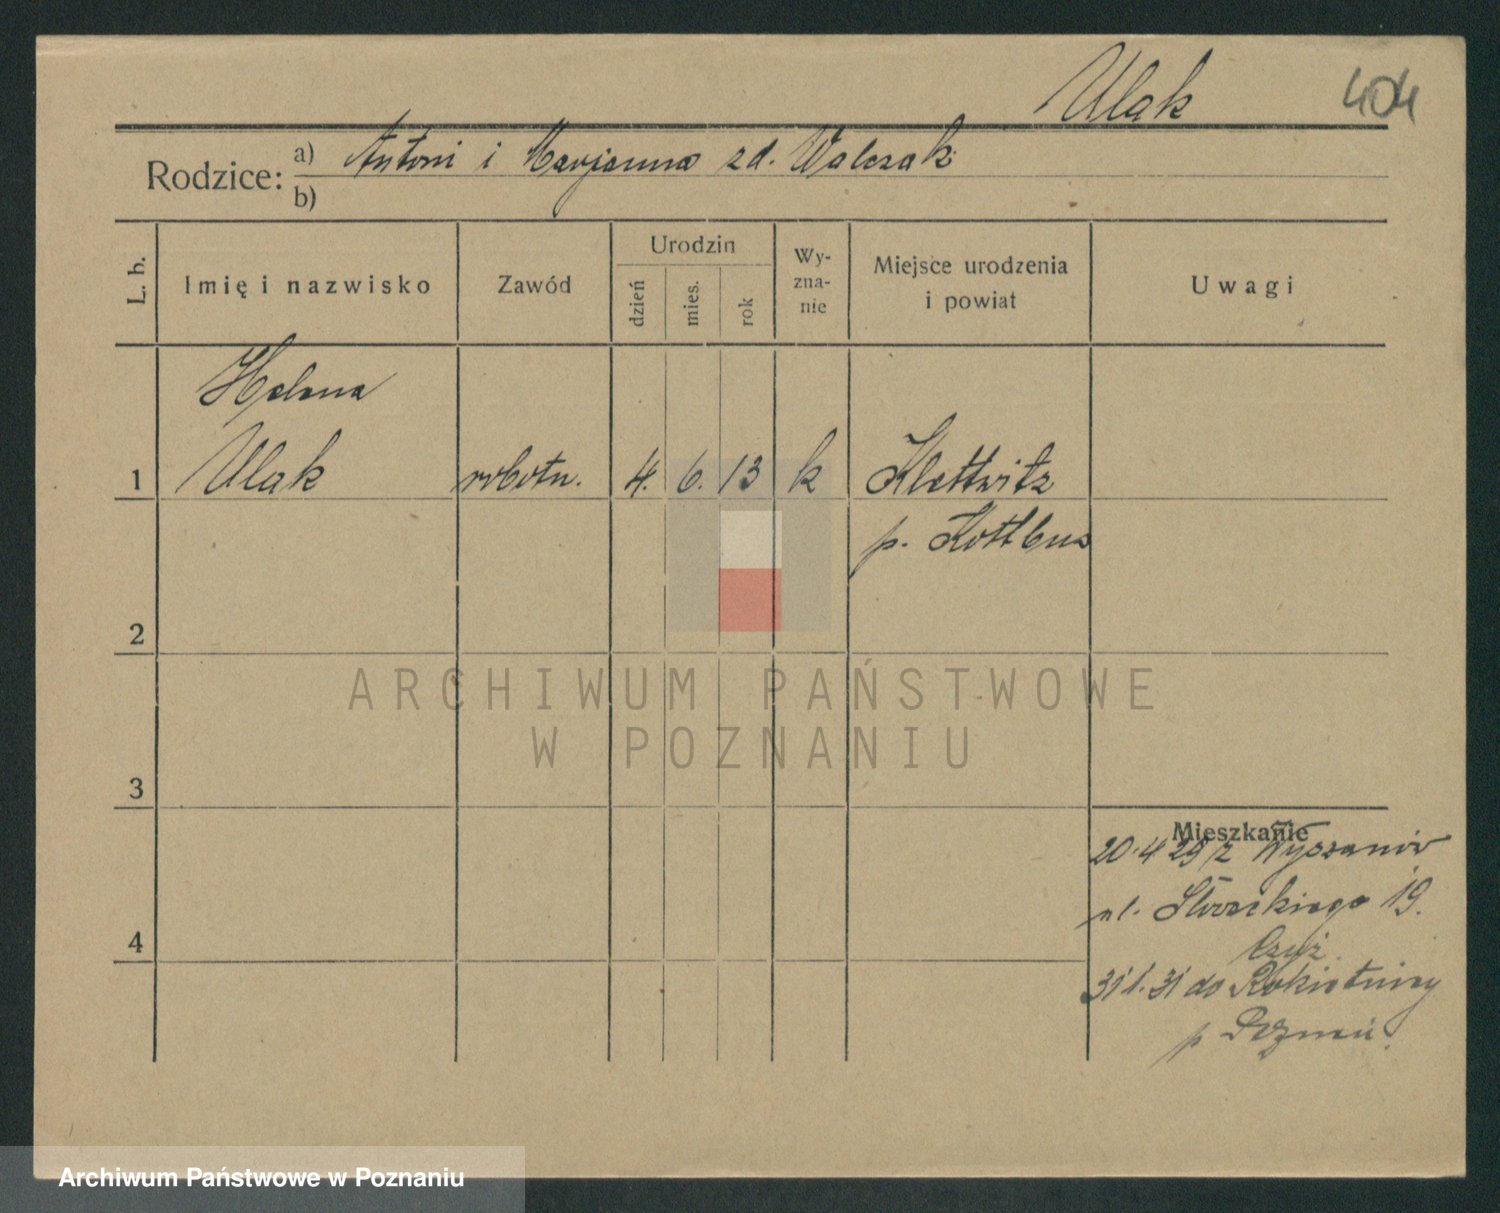 Ulak 404
Rodzice: a) Antoni i Marjanna zd. Walczak
b)
L. b. Imię i nazwisko Zawód Urodzin dzień mies. rok Wy-zna-nie Miejsce urodzenia i powiat Uwagi
Helena
1 Ulak robotn. 4. 6. 13 k Klettwitz
p. Kottbus
2
ARCHIWUM PAŃSTWOWE
W POZNANIU
3
Mieszkanie
20.4 29 z Wyszanów
ul. 19.
4
31.1.31 do Rokietnicy
p Poznań.
Archiwum Państwowe w Poznaniu